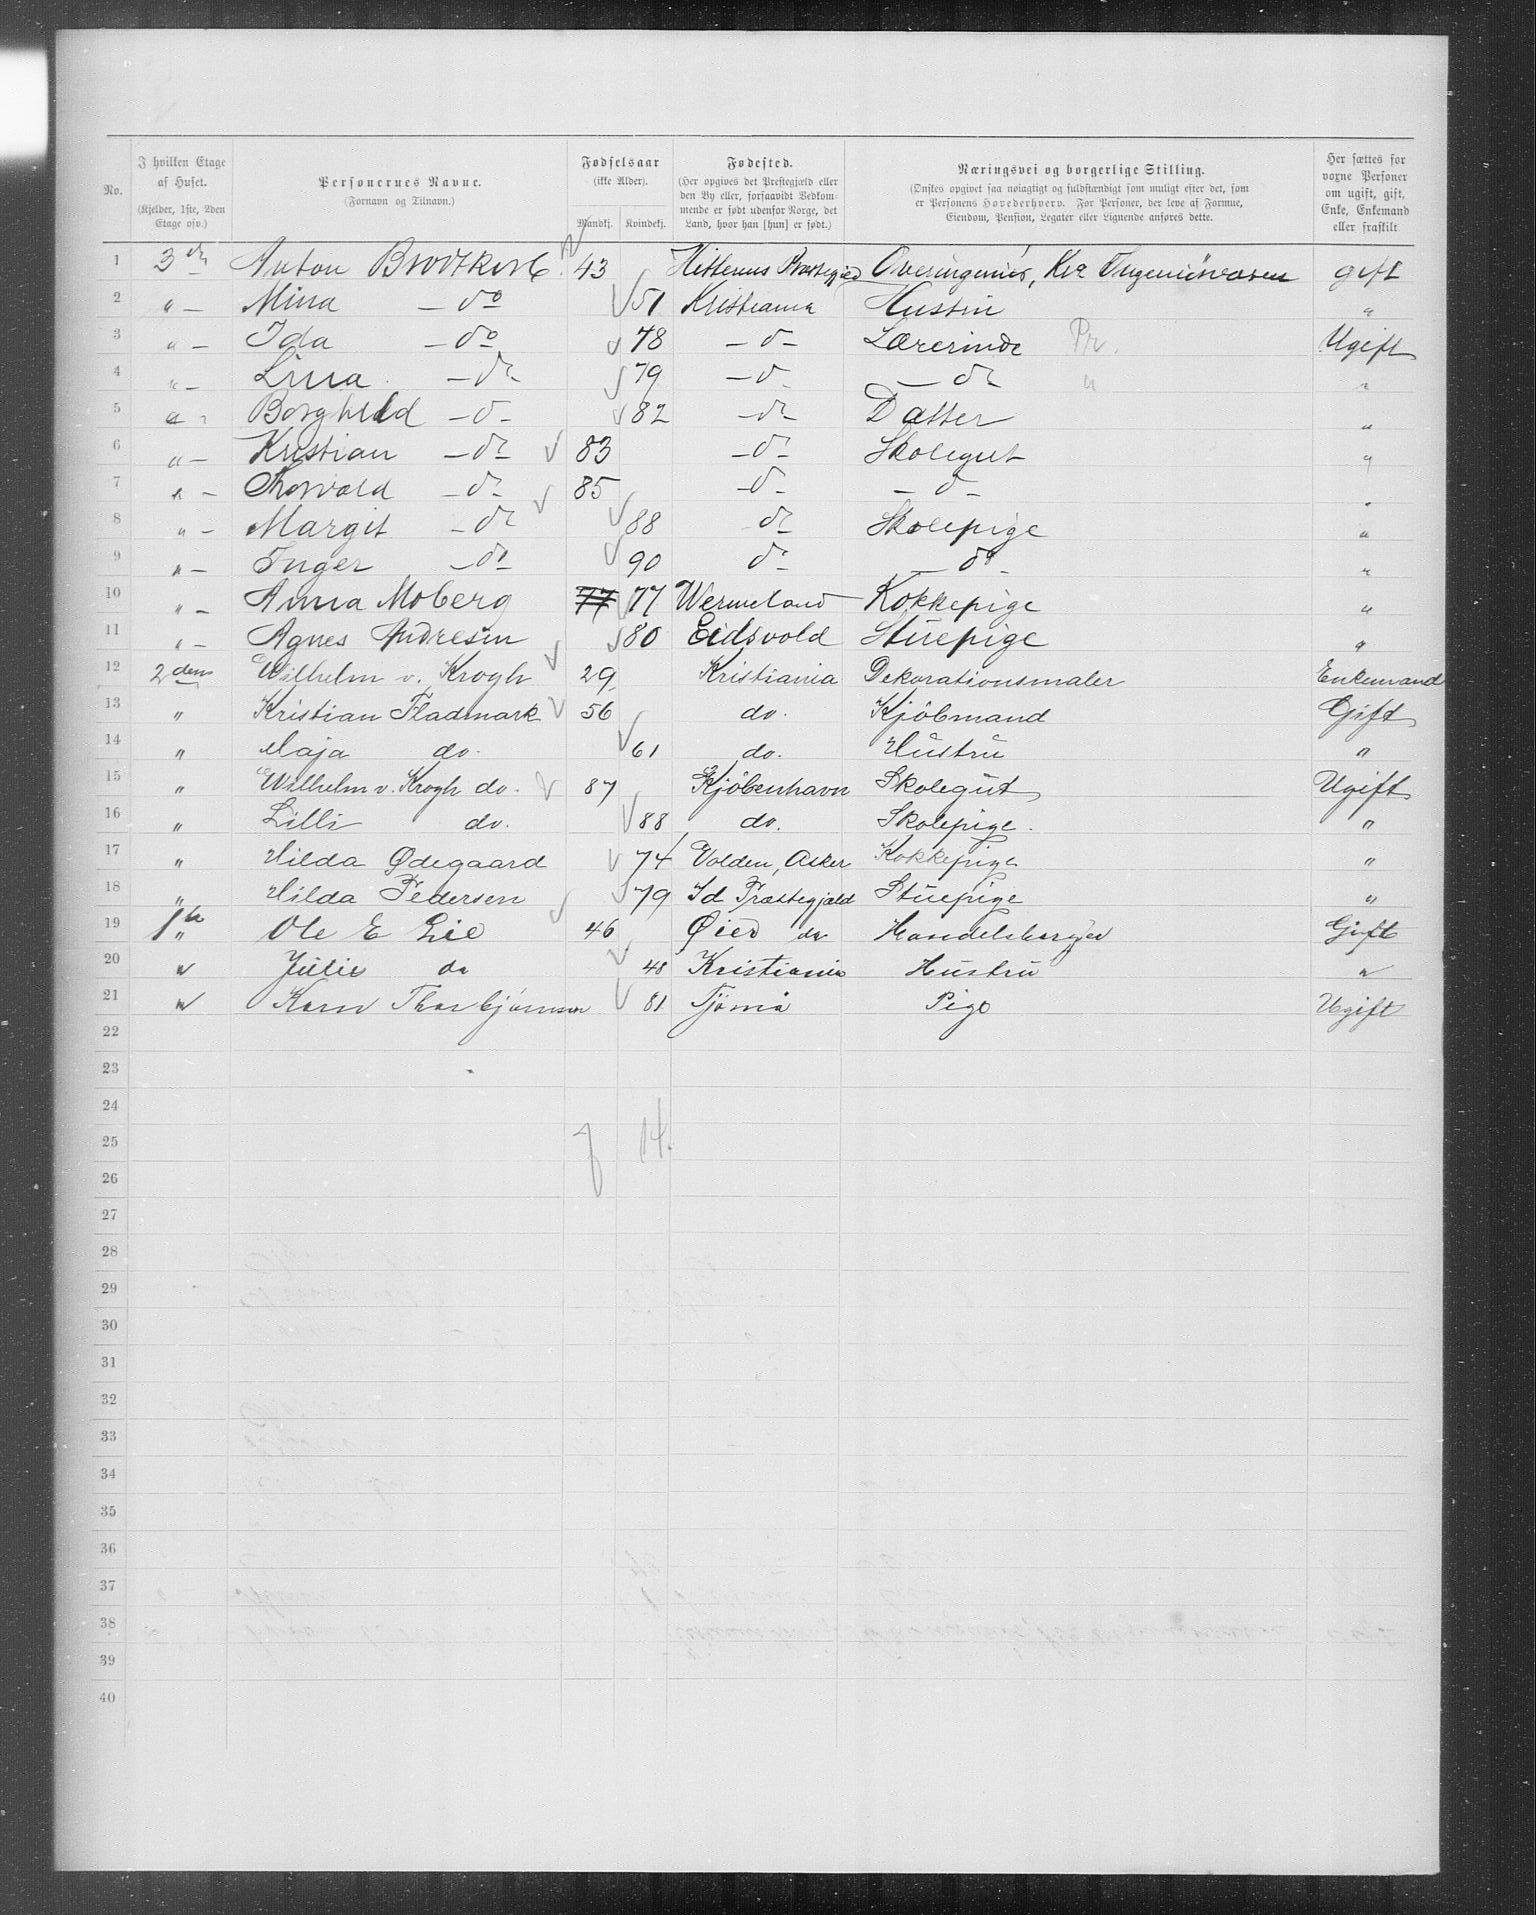 No. | I hvilken Etage af Huset. (Kjelder, 1ste, 2den Etage osv.) | Personernes Navne. (Fornavn og Tilnavn.) | Fødselsaar (ikke Alder). Mandkj. Kvindekj. | Fødested. (Her opgives det Prestegjæld eller den By eller, forsaavidt Vedkommende er født udenfor Norge, det Land, hvor han [hun] er født.) | Næringsvei og borgerlige Stilling. (Ønskes opgivet saa nøiagtigt og fuldstændigt som muligt efter det, som er Personens Hovederhverv. For Personer, der leve af Formue, Eiendom, Pension, Legater eller Lignende anføres dette. | Her sættes for voxne Personer om ugift, gift, Enke, Enkemand eller fraskilt
1 3die Anton Brodtkorb 43 Hitterøens Præstegjed Overingeniør, Ingeniørvæsen gift
2 " — Mina — do 51 Kristiania Hustru "
3 " — Ida — do 78 — d — Lærerinde Pr. Ugift
4 " — Lina — do 79 — d — — do "
5 " — Borghild — d — 82 — do — Datter "
6 " — Kristian — do 83 — do Skolegut "
7 " — Thorvald — d — 85 — d — — d — "
8 " — Margit — do 88 do Skolepige "
9 " — Inger — do 90 do — do — "
10 " — Anna Moberg 77 77 Wermeland Kokkepige "
11 " — Agnes Andresen 80 Eidsvold Stuepige "
12 2den Wilhelm v. Krogh 29 Kristiania Dekorationsmaler Enkemand
13 " Kristian Fladmark 56 do. Kjöbmand Gift
14 " Maja do. 61 do. Hustru "
15 " Wilhelm v. Krogh do. 87 Kjöbenhavn Skolegut Ugift
16 " Lilli do. 88 do. Skolepige. "
17 " Hilda Ødegaard 74 Volden, Asker Kokkepige "
18 " Hilda Pedersen 79 Id Præstegjæld Stuepige "
19 1ste " Ole E Lie 46 Øier do Handelsborger Gift
20 " Julie do 48 Kristiania Hustru "
21 " Karn Thorbjørnsen 81 Tjömö Pige Ugift
22
23
24
25 7 14.
26
27
28
29
30
31
32
33
34
35
36
37
38
39
40